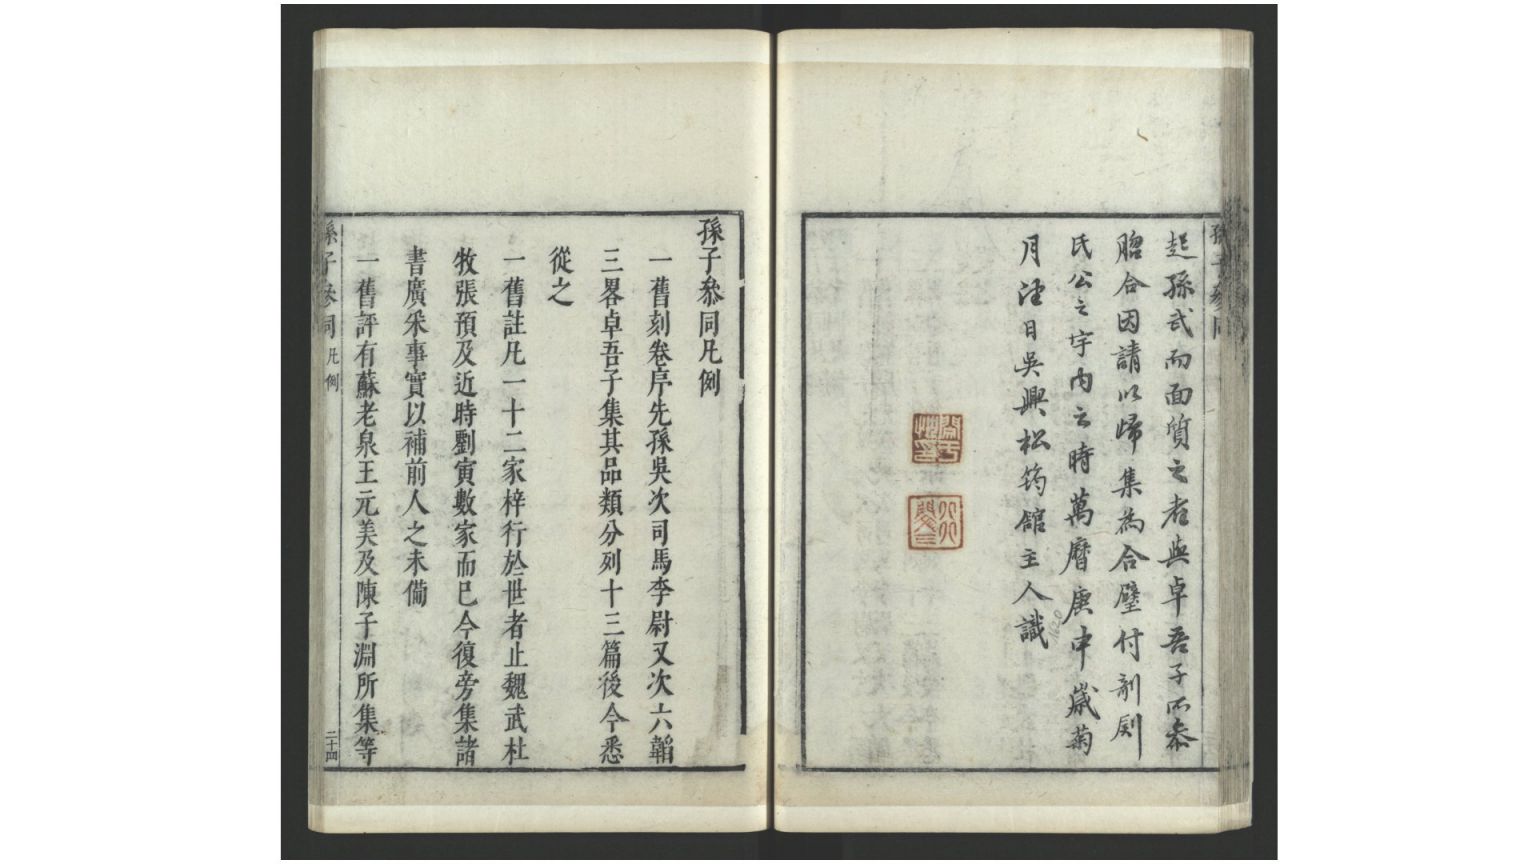 起孫武而面質之者與卓吾子所叅
脗合因請以歸集為合璧付剞劂
氏公之宇內云時萬曆庚申歲菊
月望日吳興松筠館主人識
1620
孫子叅同凡例
一舊刻卷序先孫吳次司馬李尉又次六韜
三畧卓吾子集其品類分列十三篇後今悉
從之
一舊註凡一十二家梓行於世者止魏武杜
牧張預及近時劉寅數家而已今復旁集諸
書廣采事實以補前人之未備
一舊評有蘇老泉王元美及陳子淵所集等
孫子叅同 凡例 二十四